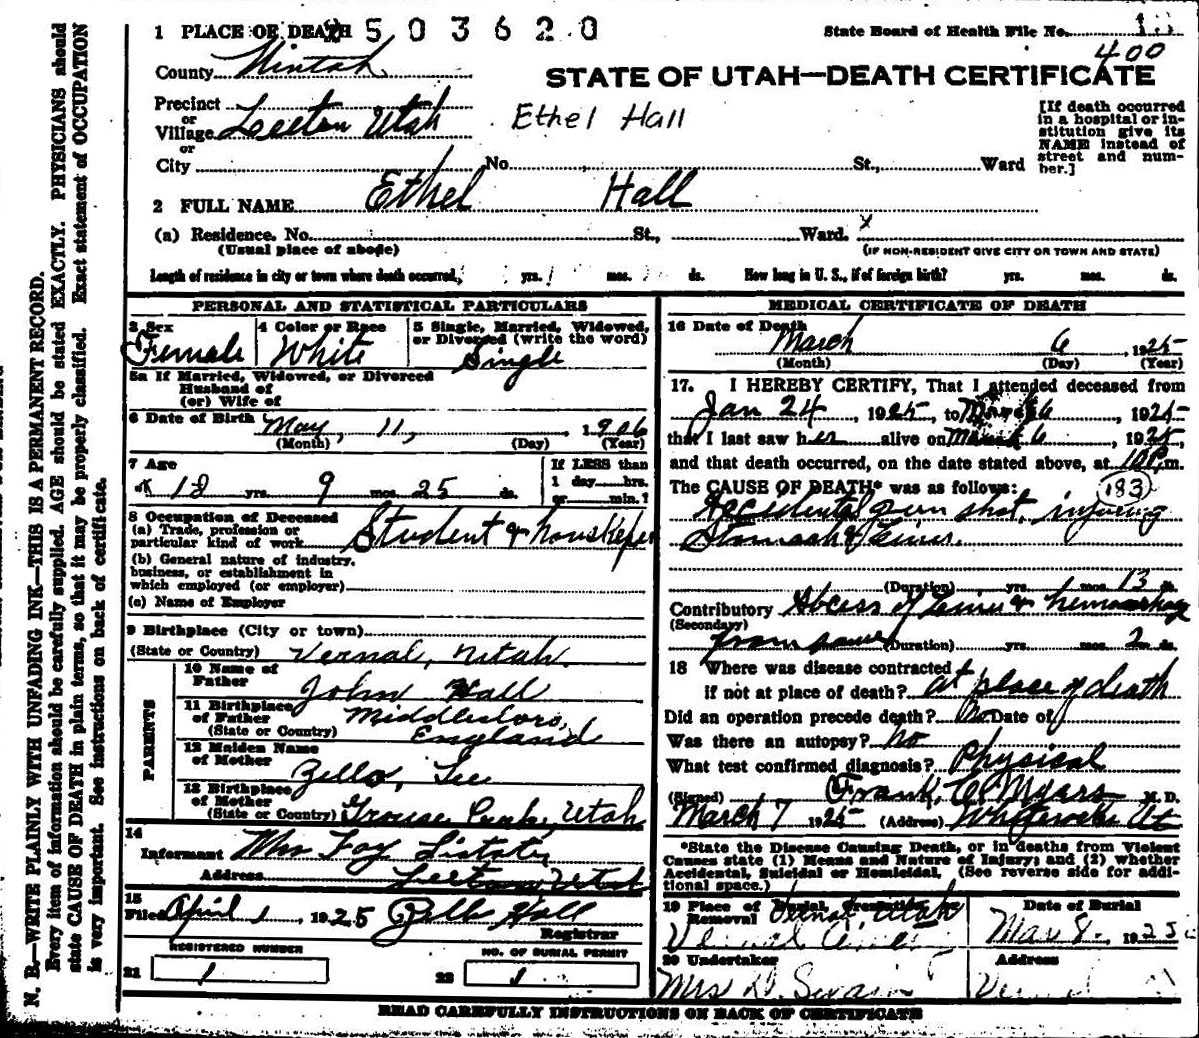 1 PLACE OF DEATH 503620
State Board of Health File No.
400
County Uintah
STATE OF UTAH—DEATH CERTIFICATE
Precinct
or
Village Leeton Utah
Ethel Hall
[If death occurred in a hospital or institution give its NAME instead of street and number.]
or
City No St., Ward
2 FULL NAME Ethel Hall
(a) Residence. No. St., Ward. x
(Usual place of abode) (IF NON-RESIDENT GIVE CITY OR TOWN AND STATE)
Length of residence in city or town where death occurred, yrs. mos. ds. How long in U. S., if of foreign birth? yrs. mos. ds.
PERSONAL AND STATISTICAL PARTICULARS
3 Sex Female
4 Color or Race White
5 Single, Married, Widowed, or Divorced (write the word) Single
5a If Married, Widowed, or Divorced
Husband of
(or) Wife of
6 Date of Birth May, 11, 1906
(Month) (Day) (Year)
7 Age 18 yrs. 9 mos. 25 ds.
If LESS than
1 day hrs.
or min.?
8 Occupation of Deceased
(a) Trade, profession or
particular kind of work Student & houskeper
(b) General nature of industry,
business, or establishment in
which employed (or employer)
(c) Name of Employer
9 Birthplace (City or town)
(State or Country) Vernal, Utah.
PARENTS
10 Name of
Father John Hall
11 Birthplace
of Father
(State or Country) Middlesboro, England
12 Maiden Name
of Mother Zella, Lee
13 Birthplace
of Mother
(State or Country) Grouse Creek, Utah
14
Informant Mrs Foy
Address Leeton Utah
15
Filed April 1 1925 Hall
Registrar
REGISTERED NUMBER
21 1
NO. OF BURIAL PERMIT
22 1
MEDICAL CERTIFICATE OF DEATH
16 Date of Death March 6, 1925
(Month) (Day) (Year)
17. I HEREBY CERTIFY, That I attended deceased from
Jan 24, 1925, to March 6 1925
that I last saw her alive on March 6, 1925,
and that death occurred, on the date stated above, at 10P.m.
The CAUSE OF DEATH* was as follows: 183
Accidental gun shot, injuring
Stomach & Liver.
(Duration) yrs. mos. 13 ds.
Contributory Abcess of Liver & hemorrhage
(Secondary)
from same (Duration) yrs. mos. 2 ds.
18 Where was disease contracted
if not at place of death? at place of death
Did an operation precede death? No Date of
Was there an autopsy? No
What test confirmed diagnosis? Physical
(Signed) Frank, Myars M. D.
March 7 1925 (Address) Whiterocks Ut
*State the Disease Causing Death, or in deaths from Violent
Causes state (1) Means and Nature of Injury; and (2) whether
Accidental, Suicidal or Homicidal. (See reverse side for additional space.)
19 Place of Burial, Cremation, or
Removal Vernal Utah
Vernal
Date of Burial
Mar 8. 1925
20 Undertaker
Mrs D. Swain
Address
READ CAREFULLY INSTRUCTIONS ON BACK OF CERTIFICATE
N. B.—WRITE PLAINLY WITH UNFADING INK—THIS IS A PERMANENT RECORD.
Every item of information should be carefully supplied. AGE should be stated EXACTLY. PHYSICIANS should
state CAUSE OF DEATH in plain terms, so that it may be properly classified. Exact statement of OCCUPATION
is very important. See instructions on back of certificate.